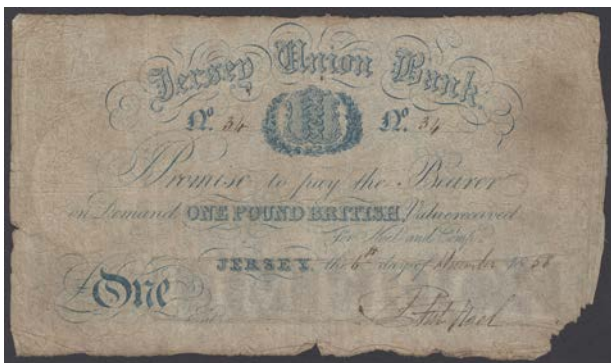 Jersey Union Bank
No. 34 No. 34
Promise to pay the Bearer
on Demand ONE POUND BRITISH, Value received
For Noel and Comp.
JERSEY, the 6th day of 1858
£One
Noel